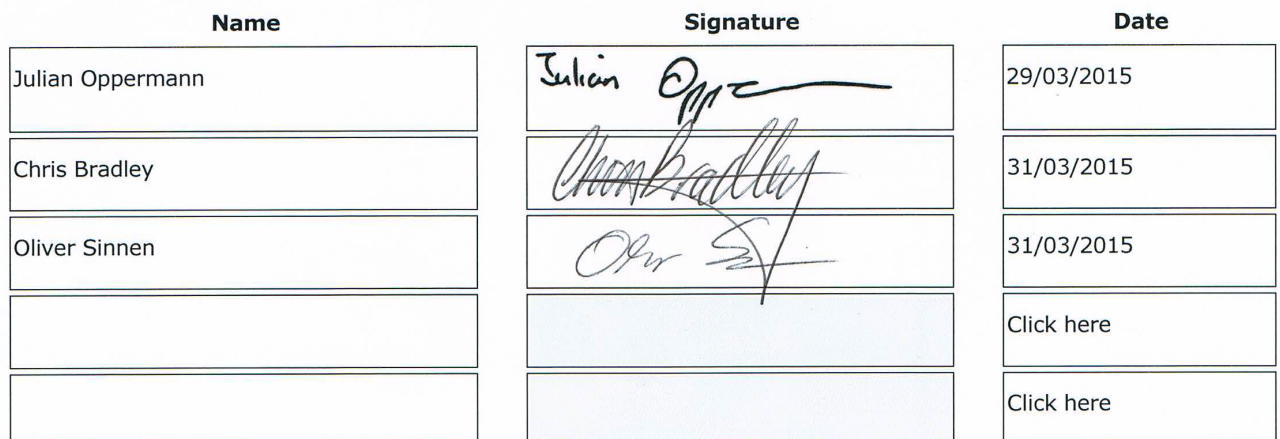 Name Signature Date
Julian Oppermann Julian Opp 29/03/2015
Chris Bradley Chris Bradley 31/03/2015
Oliver Sinnen 31/03/2015
Click here
Click here